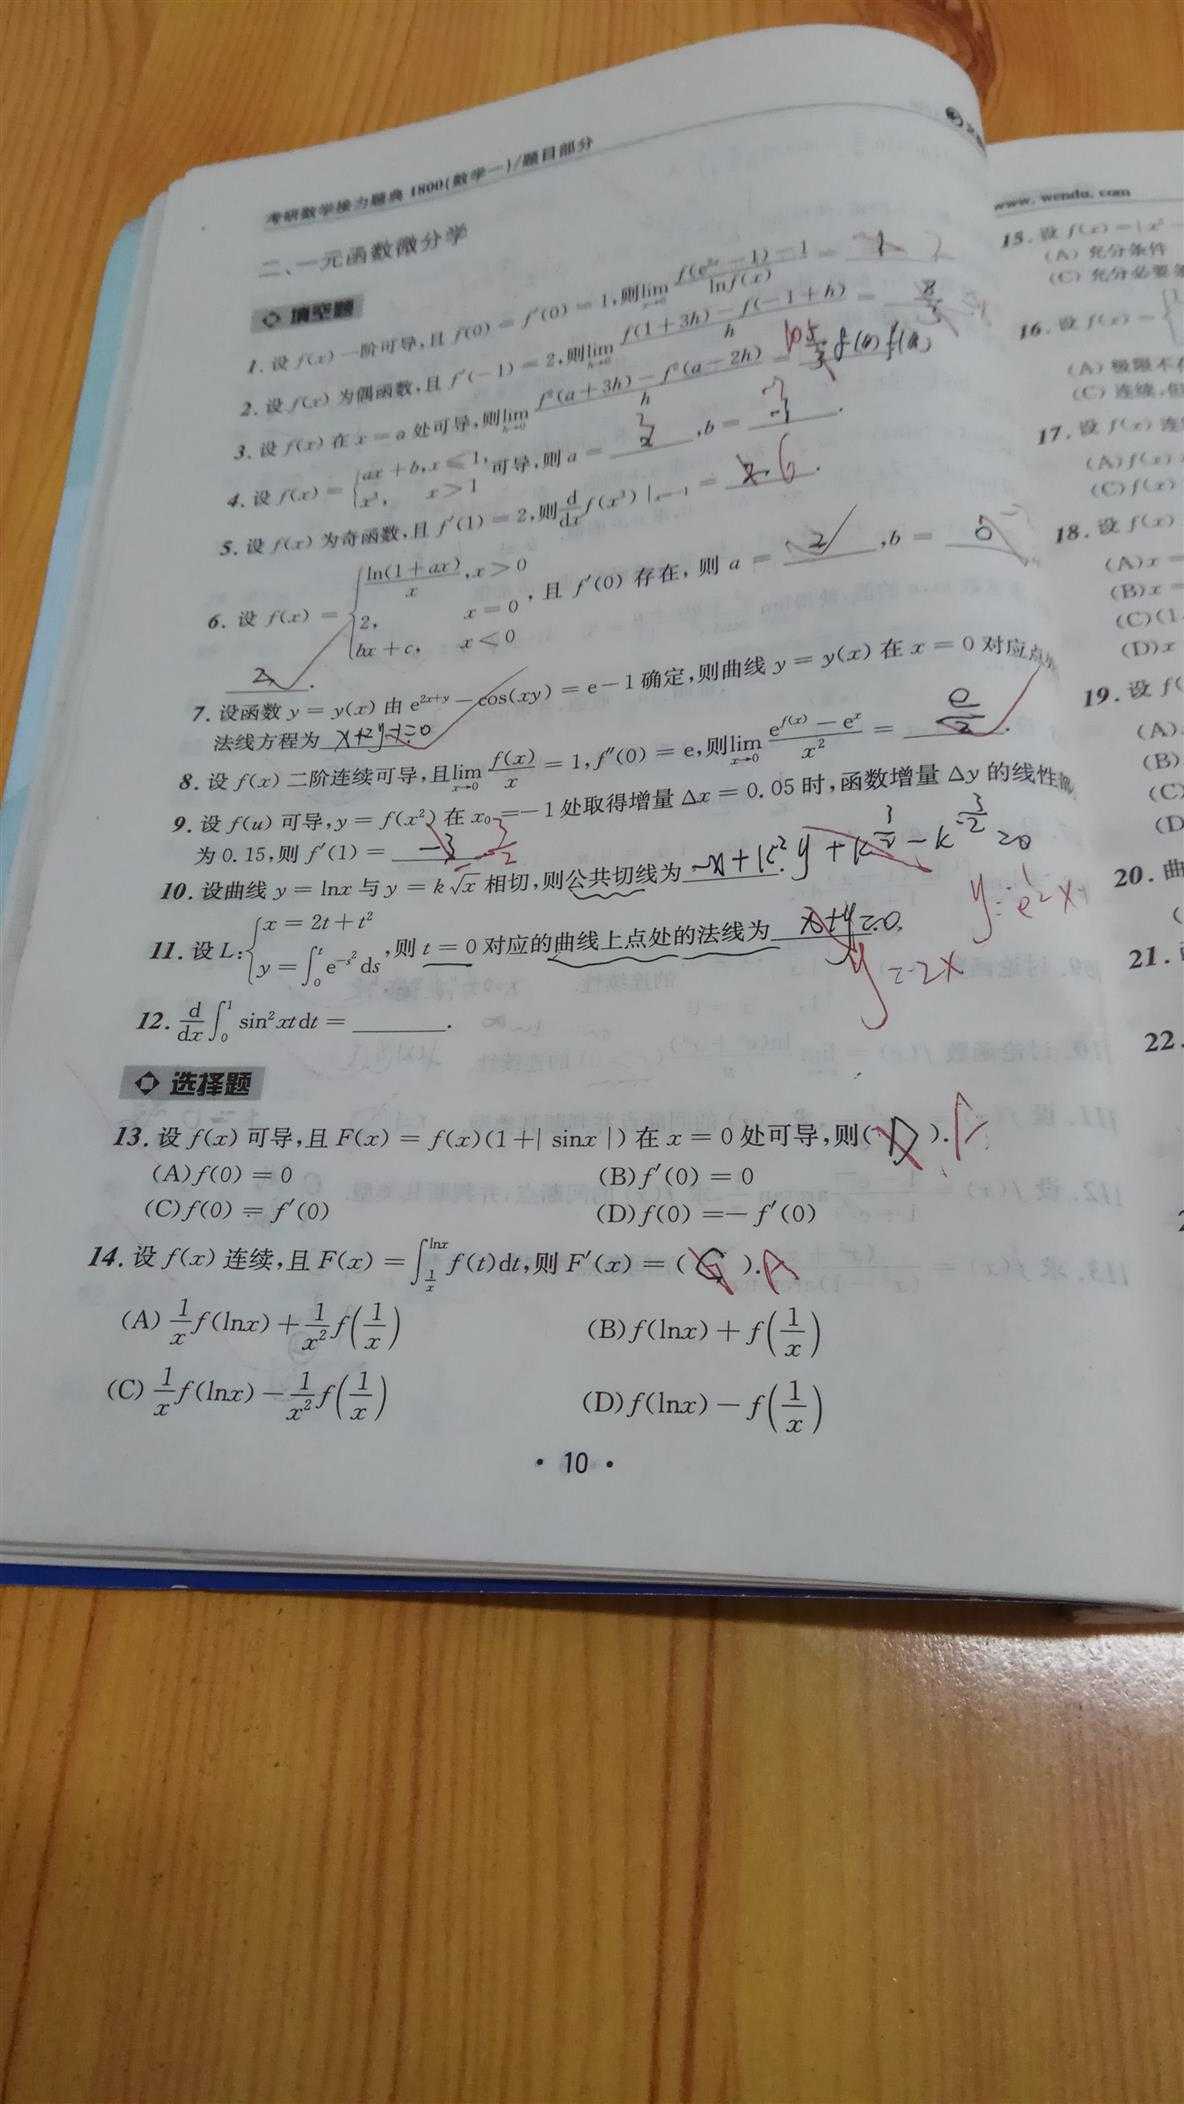 考研数学接力题典1800(数学一)/题目部分
二、一元函数微分学
◇ 填空题
1. 设 f(x) 一阶可导,且 f(0) = f′(0) = 1,则lim x→0 (f(e²ˣ − 1) − 1)/(ln f(x)) = 2
2. 设 f(x) 为偶函数,且 f′(−1) = 2,则lim h→0 (f(1 + 3h) − f(−1 + h))/h =
3. 设 f(x) 在 x = a 处可导,则lim h→0 (f²(a + 3h) − f²(a − 2h))/h = 10 f(a) f′(a)
4. 设 f(x) = { ax + b, x ⩽ 1, x³, x > 1 可导,则 a = 3 ,b =
5. 设 f(x) 为奇函数,且 f′(1) = 2,则 d/dx f(x³) |x=−1 = 6 .
6. 设 f(x) = { ln(1 + ax)/x, x > 0 2, x = 0 bx + c, x ⩽ 0 , 且 f′(0) 存在, 则 a = 2 ,b =
2 .
7. 设函数 y = y(x) 由 e²ˣ⁺ʸ − cos(xy) = e − 1 确定,则曲线 y = y(x) 在 x = 0 对应点处
法线方程为 x+2y-2=0
8. 设 f(x) 二阶连续可导,且lim x→0 f(x)/x = 1, f″(0) = e,则lim x→0 (e^f(x) − eˣ)/x² = e/2 .
9. 设 f(u) 可导,y = f(x²) 在 x₀ = −1 处取得增量 Δx = 0.05 时,函数增量 Δy 的线性部
为 0.15,则 f′(1) = −3 −3/2
10. 设曲线 y = lnx 与 y = k√x 相切,则公共切线为 −x + k² y + k^(3/2) − k^(-3/2) = 0
11. 设 L: { x = 2t + t² y = ∫₀ᵗ e^(−s²) ds ,则 t = 0 对应的曲线上点处的法线为 x+y=0.
y = −2x
12. d/dx ∫₀¹ sin²xt dt = ______.
◇ 选择题
13. 设 f(x) 可导,且 F(x) = f(x)(1+| sinx |) 在 x = 0 处可导,则( D ). A
(A) f(0) = 0 (B) f′(0) = 0
(C) f(0) = f′(0) (D) f(0) = − f′(0)
14. 设 f(x) 连续,且 F(x) = ∫_(1/x)^(lnx) f(t)dt,则 F′(x) = ( C ). A
(A) 1/x f(lnx) + 1/x² f(1/x) (B) f(lnx) + f(1/x)
(C) 1/x f(lnx) − 1/x² f(1/x) (D) f(lnx) − f(1/x)
• 10 •
www. wendu. com
15. 设 f(x) = | x²
(A) 充分条件
(C) 充分必要
16. 设 f(x) =
(A) 极限不
(C) 连续,但
17. 设 f(x) 连
(A) f(x)
(C) f(x)
18. 设 f(x)
(A) x =
(B) x =
(C) (1
(D) x
19. 设 f(
(A)
(B)
(C)
(D
20. 曲
(
21.
22.